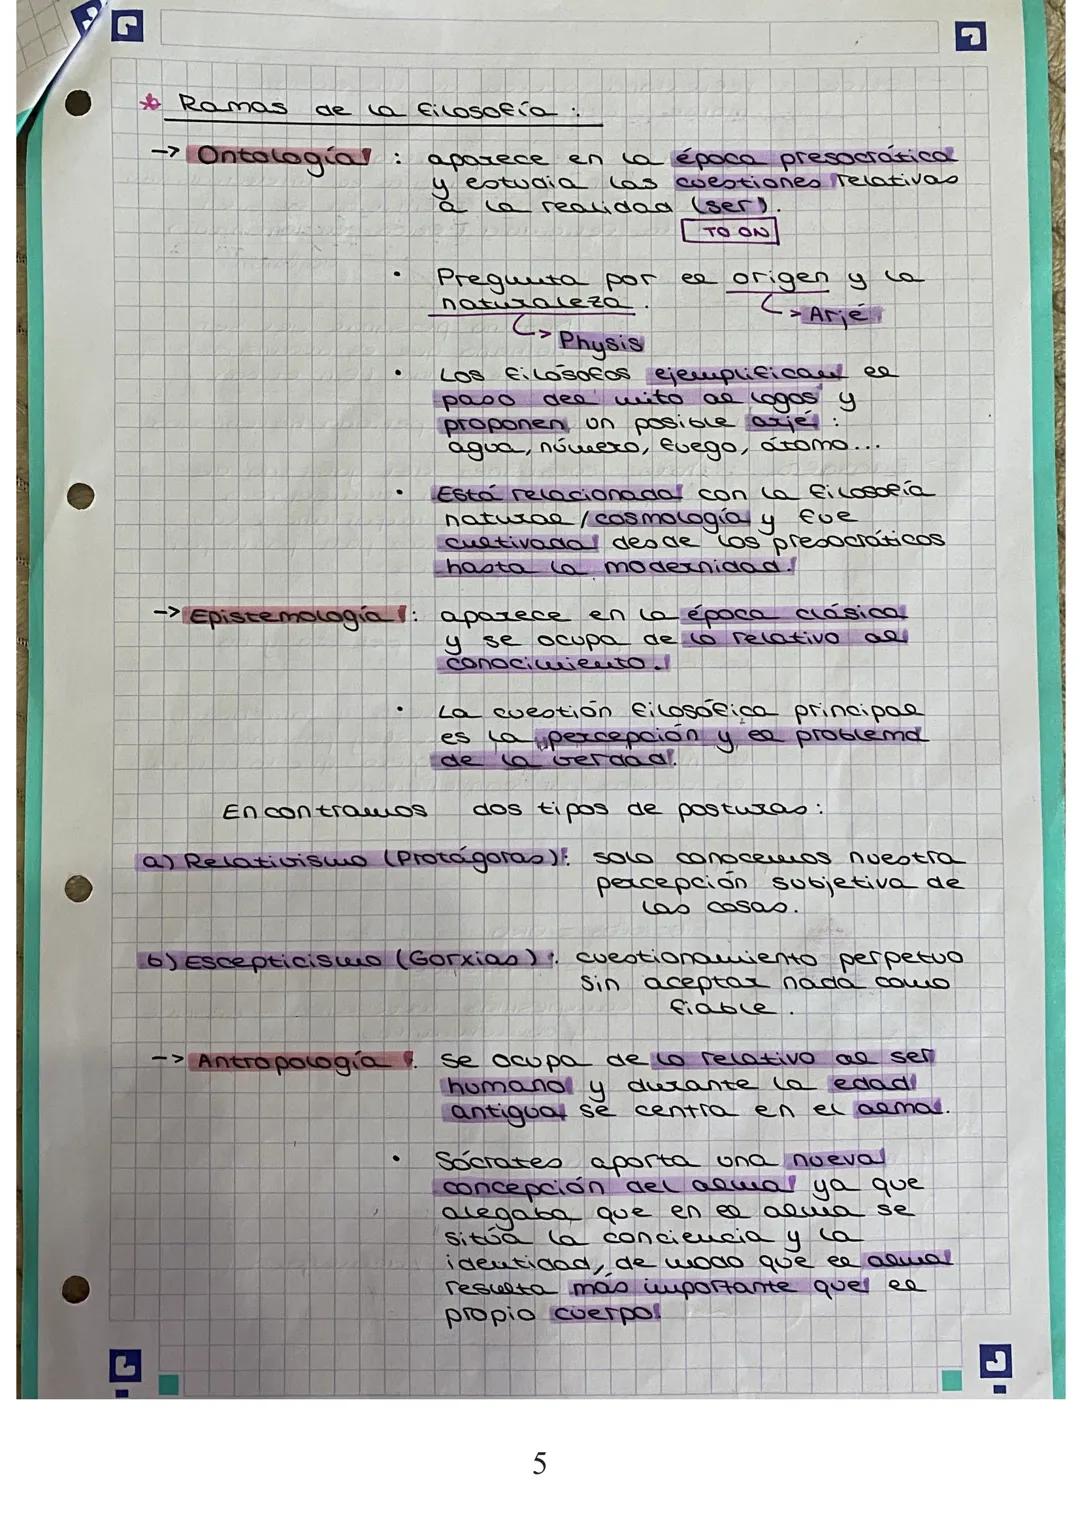 * Ramas de la filosofía :
-> Ontología : aparece en la época presocrática
y estudia las cuestiones relativas
a la realidad (ser).
TO ON
• Pregunta por el origen y la
naturaleza.
-> Arjé
-> Physis
• Los filósofos ejemplifican el
paso del mito al logos y
proponen un posible arjé :
agua, número, fuego, átomo...
• Está relacionada con la filosofía
natural / cosmología y fue
cultivada desde los presocráticos
hasta la modernidad.
-> Epistemología : aparece en la época clásica
y se ocupa de lo relativo al
conocimiento.
• La cuestión filosófica principal
es la percepción y el problema
de la verdad.
Encontramos dos tipos de posturas :
a) Relativismo (Protágoras) : solo conocemos nuestra
percepción subjetiva de
las cosas.
b) Escepticismo (Gorxias) : cuestionamiento perpetuo
sin aceptar nada como
fiable.
-> Antropología : se ocupa de lo relativo al ser
humano y durante la edad
antigua se centra en el alma.
• Sócrates aporta una nueva
concepción del alma ya que
alegaba que en el alma se
sitúa la conciencia y la
identidad, de modo que el alma
resulta más importante que el
propio cuerpo
5